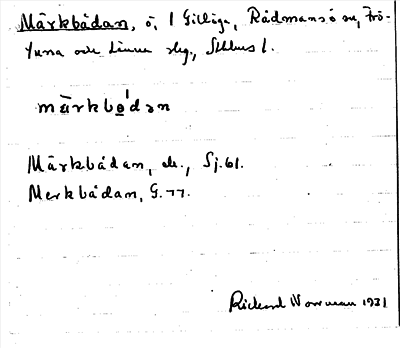 Märkbådan, ö, 1 Gillöga, Rådmansö sn, Frö-
tuna och Länna slg., Sthlms l.
märkbo̲'dən
Märkbådan, ds., Sj. 61.
Merkbådan, G. 77.
Rickard Norrman 1931